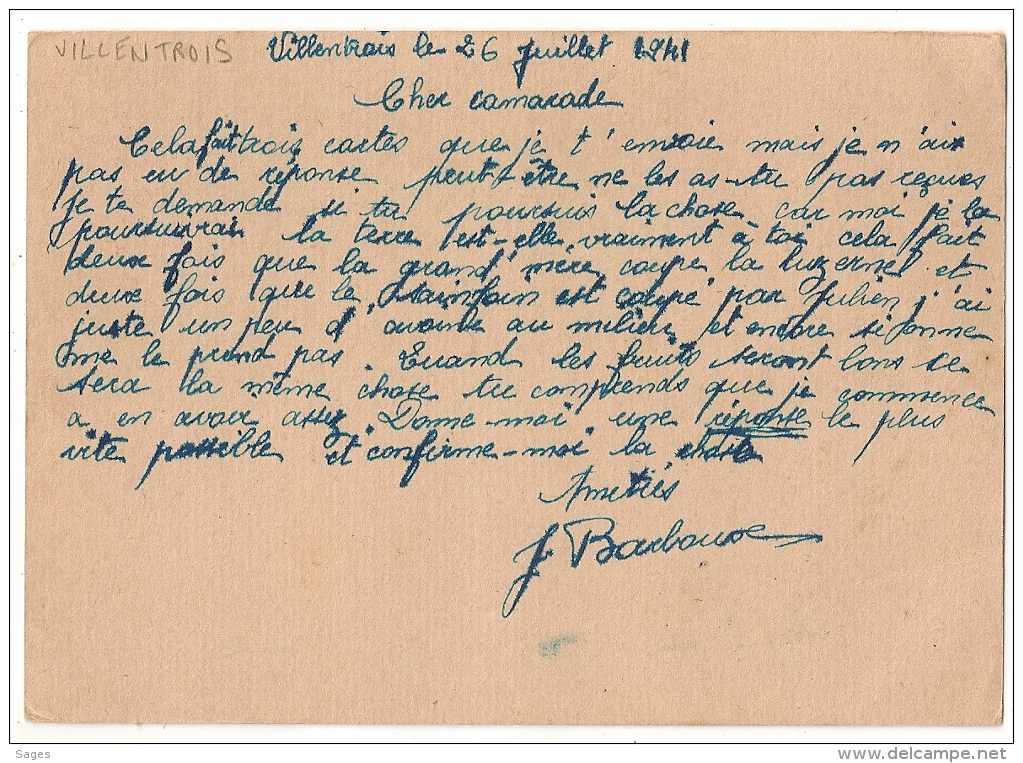 VILLENTROIS Villentrois le 26 juillet 1941
Cher camarade
Cela fait trois cartes que je t'envoie mais je n'ai
pas eu de réponse peut-être ne les as-tu pas reçues
je te demande si tu poursuis la chose car moi je la
poursuivrai la terre est-elle vraiment à toi cela fait
deux fois que la grand'mère coupe la luzerne et
deux fois que le sainfoin est coupé par Julien j'ai
juste un peu d'avoine au milieu et encore si on ne
me le prend pas. Quand les fruits seront bons ce
sera la même chose tu comprends que je commence
a en avoir assez Donne-moi une réponse le plus
vite possible et confirme-moi la chose
Amitiés
J. Barboux
Sages
www.delcampe.net